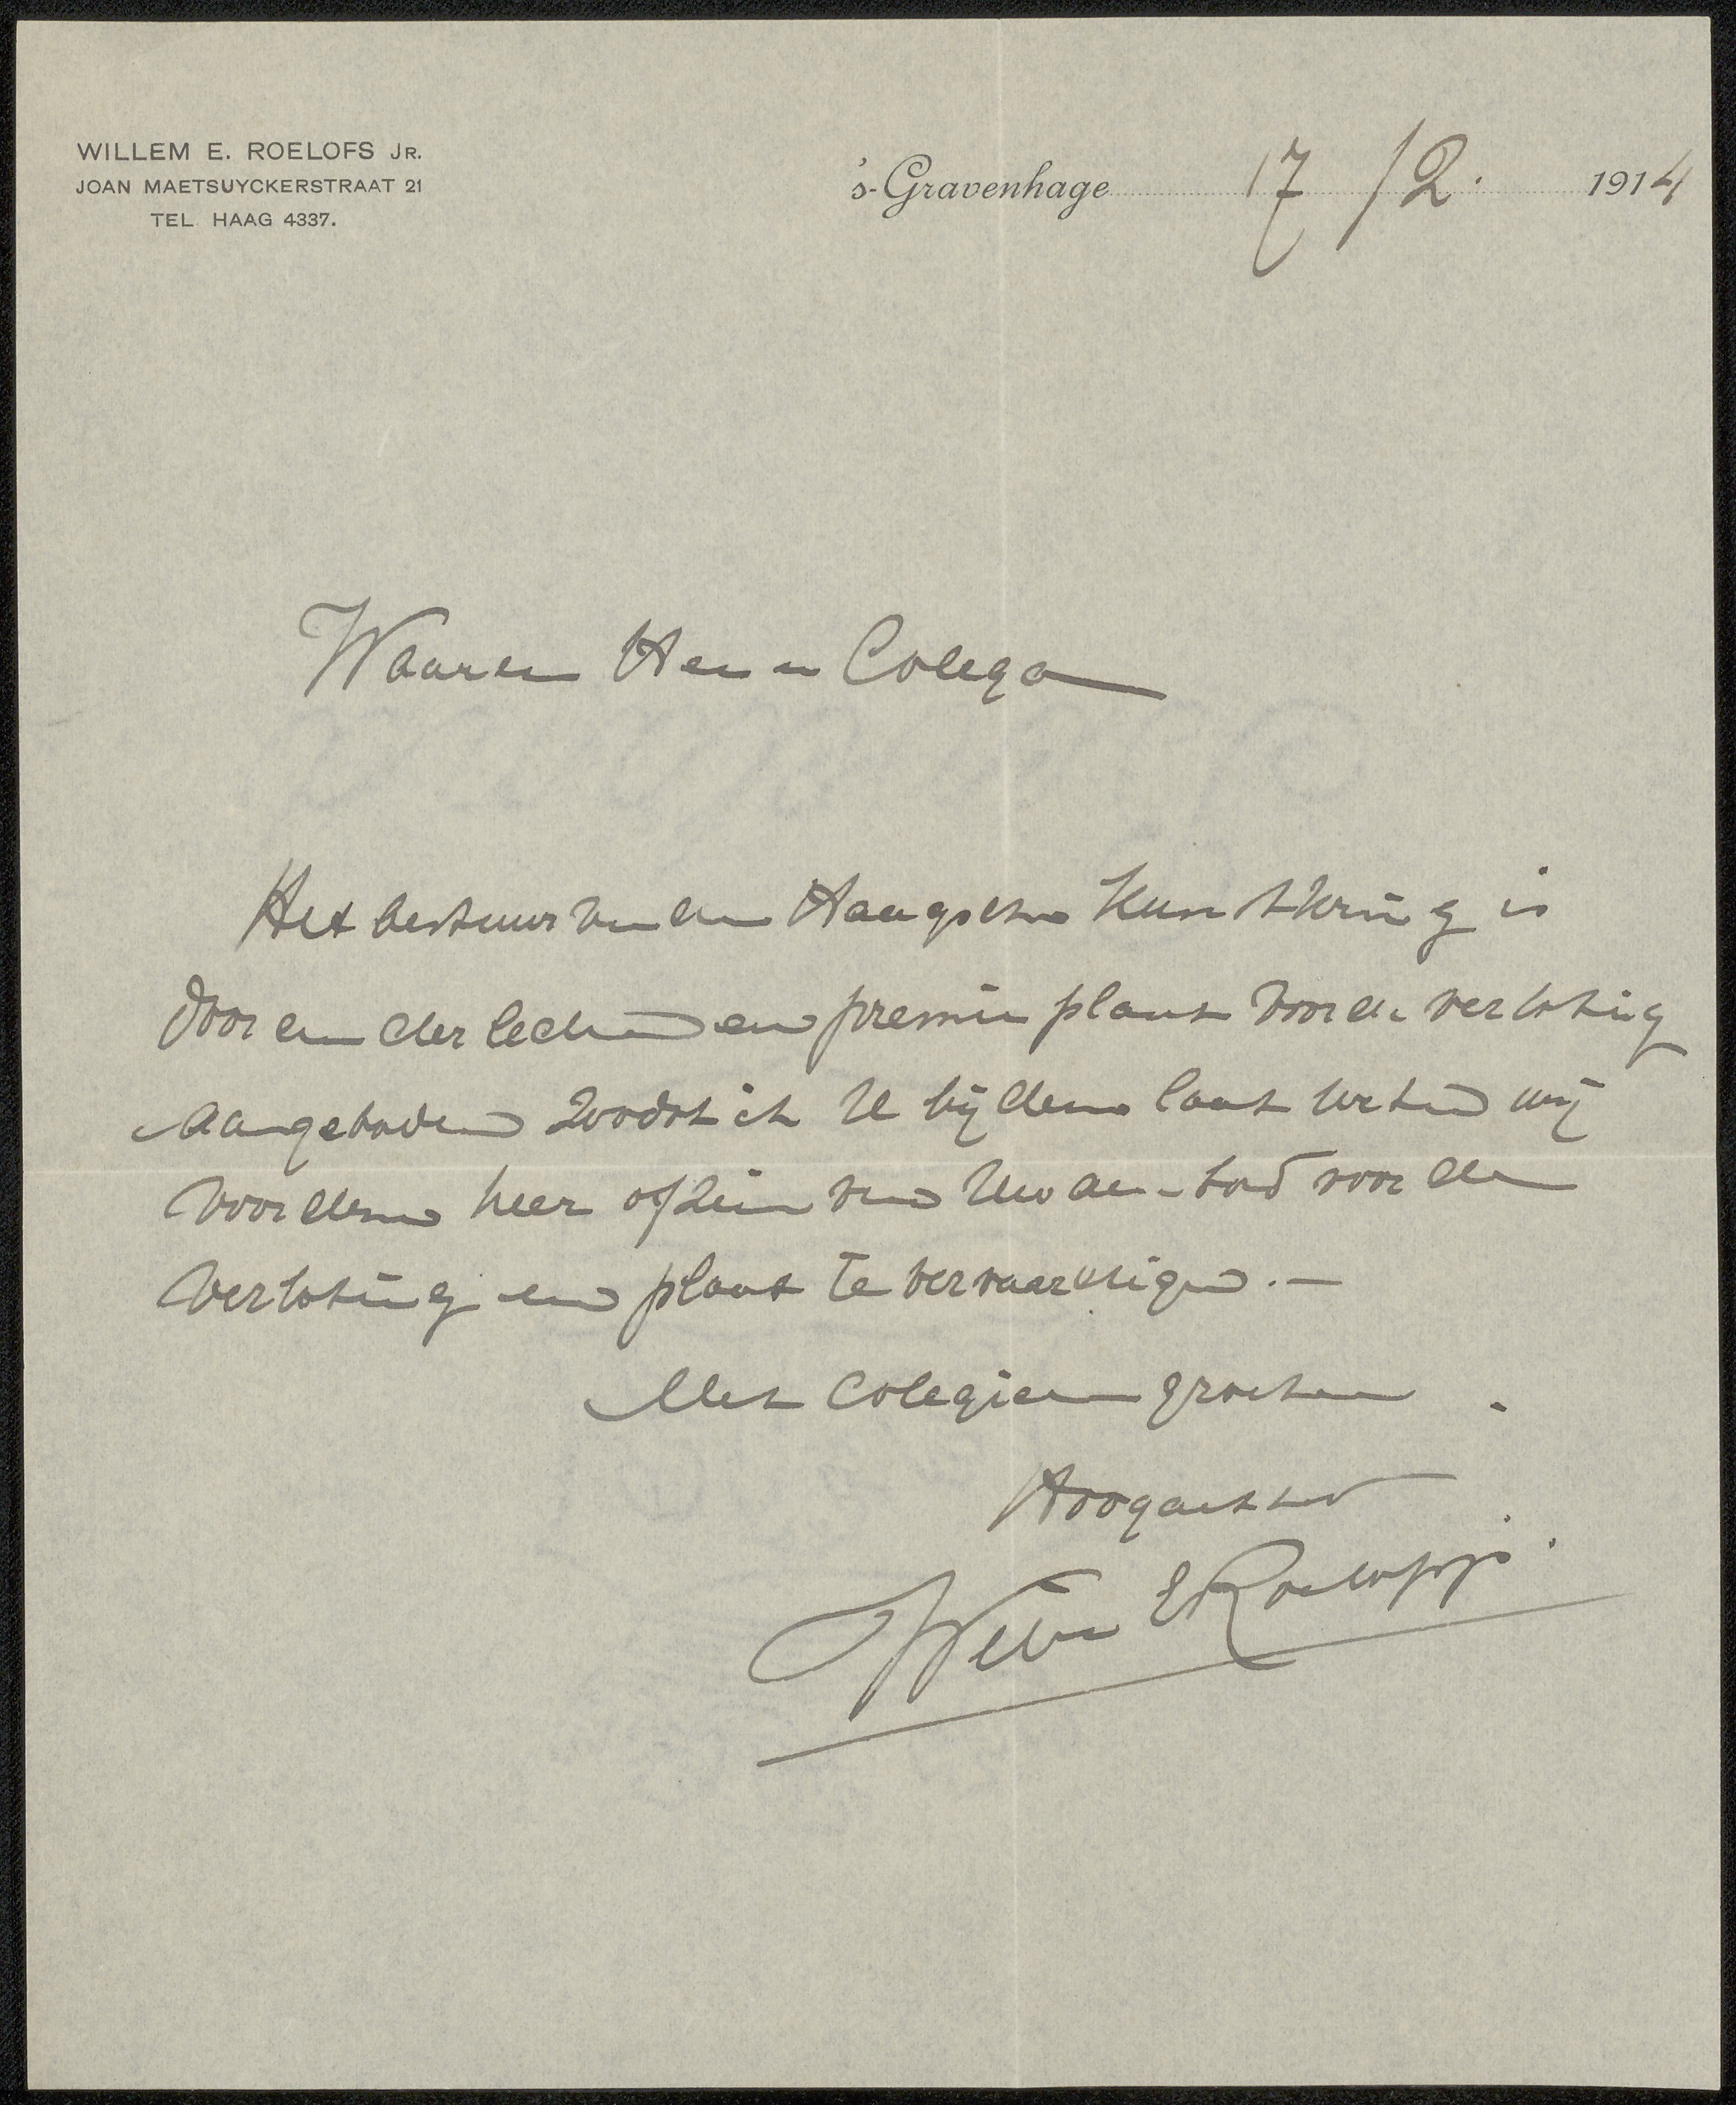 WILLEM E. ROELOFS JR.
JOAN MAETSUYCKERSTRAAT 21
TEL HAAG 4337.
's-Gravenhage 17/2. 1914
Waarde Heer en Colega
Het bestuur van den Haagschen Kunstkring is
door een der leden een premie plaat voor de verloting
aangeboden zoodat ik U bij dezen laat weten wij
voor dezen keer afzien van Uw aanbod voor de
verloting een plaat te vervaardigen. —
Met Colegiale groeten.
Hoogachtend
Willem E Roelofs jr.